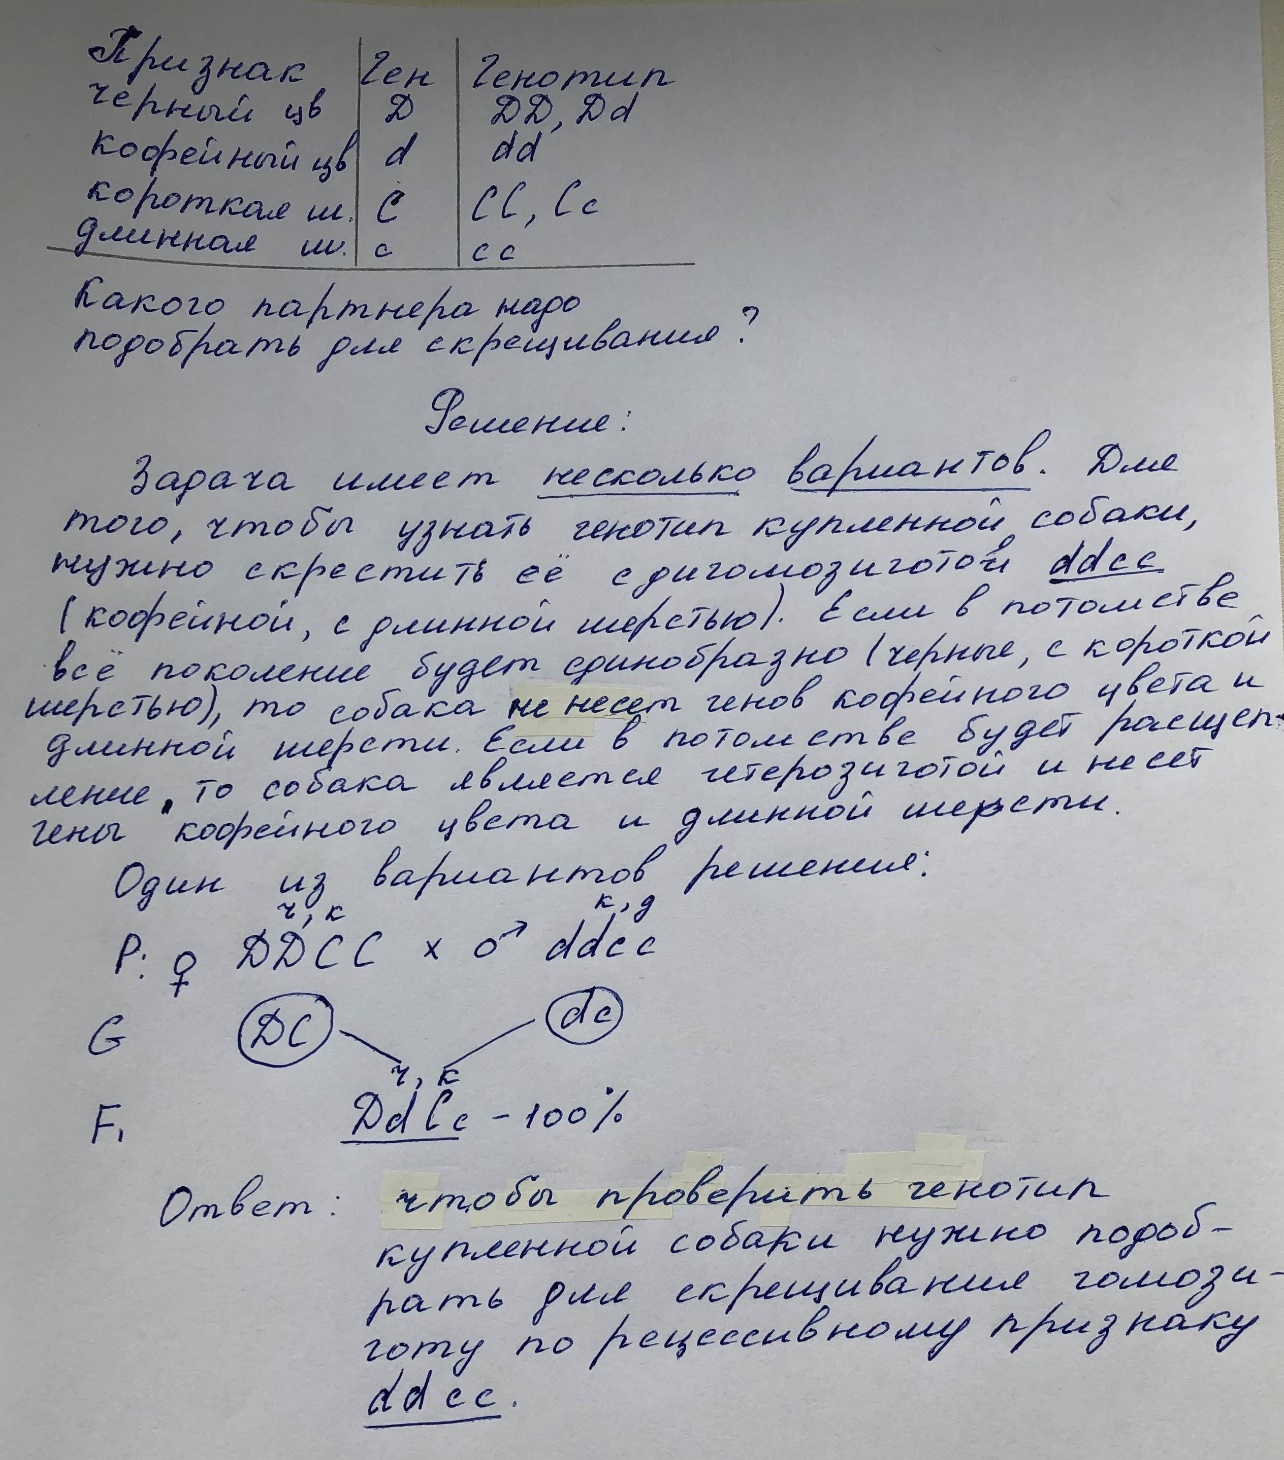 Признак Ген Генотип
черный цв D DD, Dd
кофейный цв d dd
короткая ш. C CC, Cc
длинная ш. c cc
Какого партнера надо
подобрать для скрещивания?
Решение:
Задача имеет несколько вариантов. Для
того, чтобы узнать генотип купленной собаки,
нужно скрестить её с дигомозиготой ddcc
(кофейной, с длинной шерстью). Если в потомстве
всё поколение будет единобразно (черные, с короткой
шерстью), то собака не несет генов кофейного цвета и
длинной шерсти. Если в потомстве будет расщеп-
ление, то собака является гетерозиготой и несет
гены кофейного цвета и длинной шерсти.
Один из вариантов решения:
ч, к к, д
P: ♀ DDCC x ♂ ddcc
G DC dc
ч, к
F₁ DdCc - 100%
Ответ: чтобы проверить генотип
купленной собаки нужно подоб-
рать для скрещивания гомози-
готу по рецессивному признаку
ddcc.